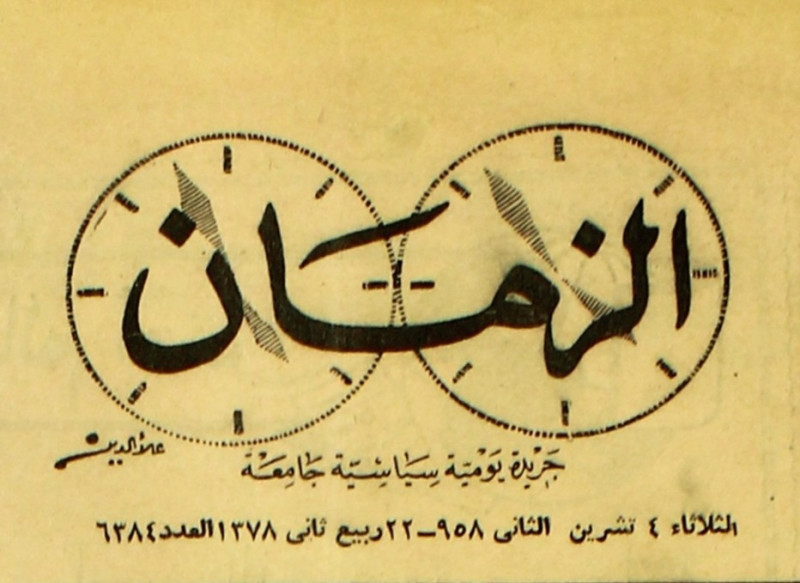 الزمان
علاءالدين
جَرْيدة يَوْميّة سِيَاسِيّة جَامِعَة
الثلاثاء ٤ تشرين الثانى ٩٥٨ـ٢٢ ربيع ثانى ١٣٧٨ العدد ٦٣٨٤